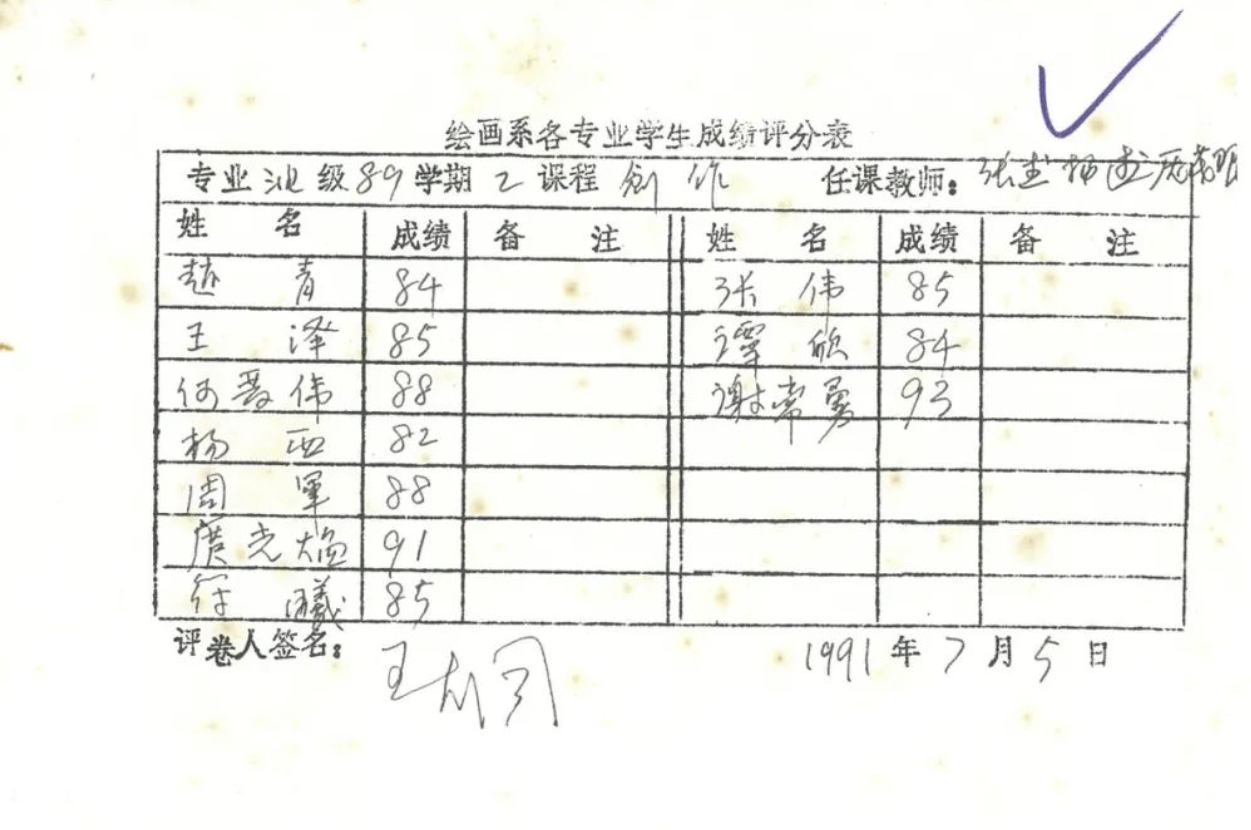 绘画系各专业学生成绩评分表
专业 油 级 89 学期 2 课程 创作 任课教师：张
姓 名 成绩 备 注 姓 名 成绩 备 注
赵 青 84 张 伟 85
王 泽 85 谭 欣 84
何晋伟 88 谢常勇 93
杨 西 82
周 军 88
光 91
85
评卷人签名：王
1991 年 7 月 5 日